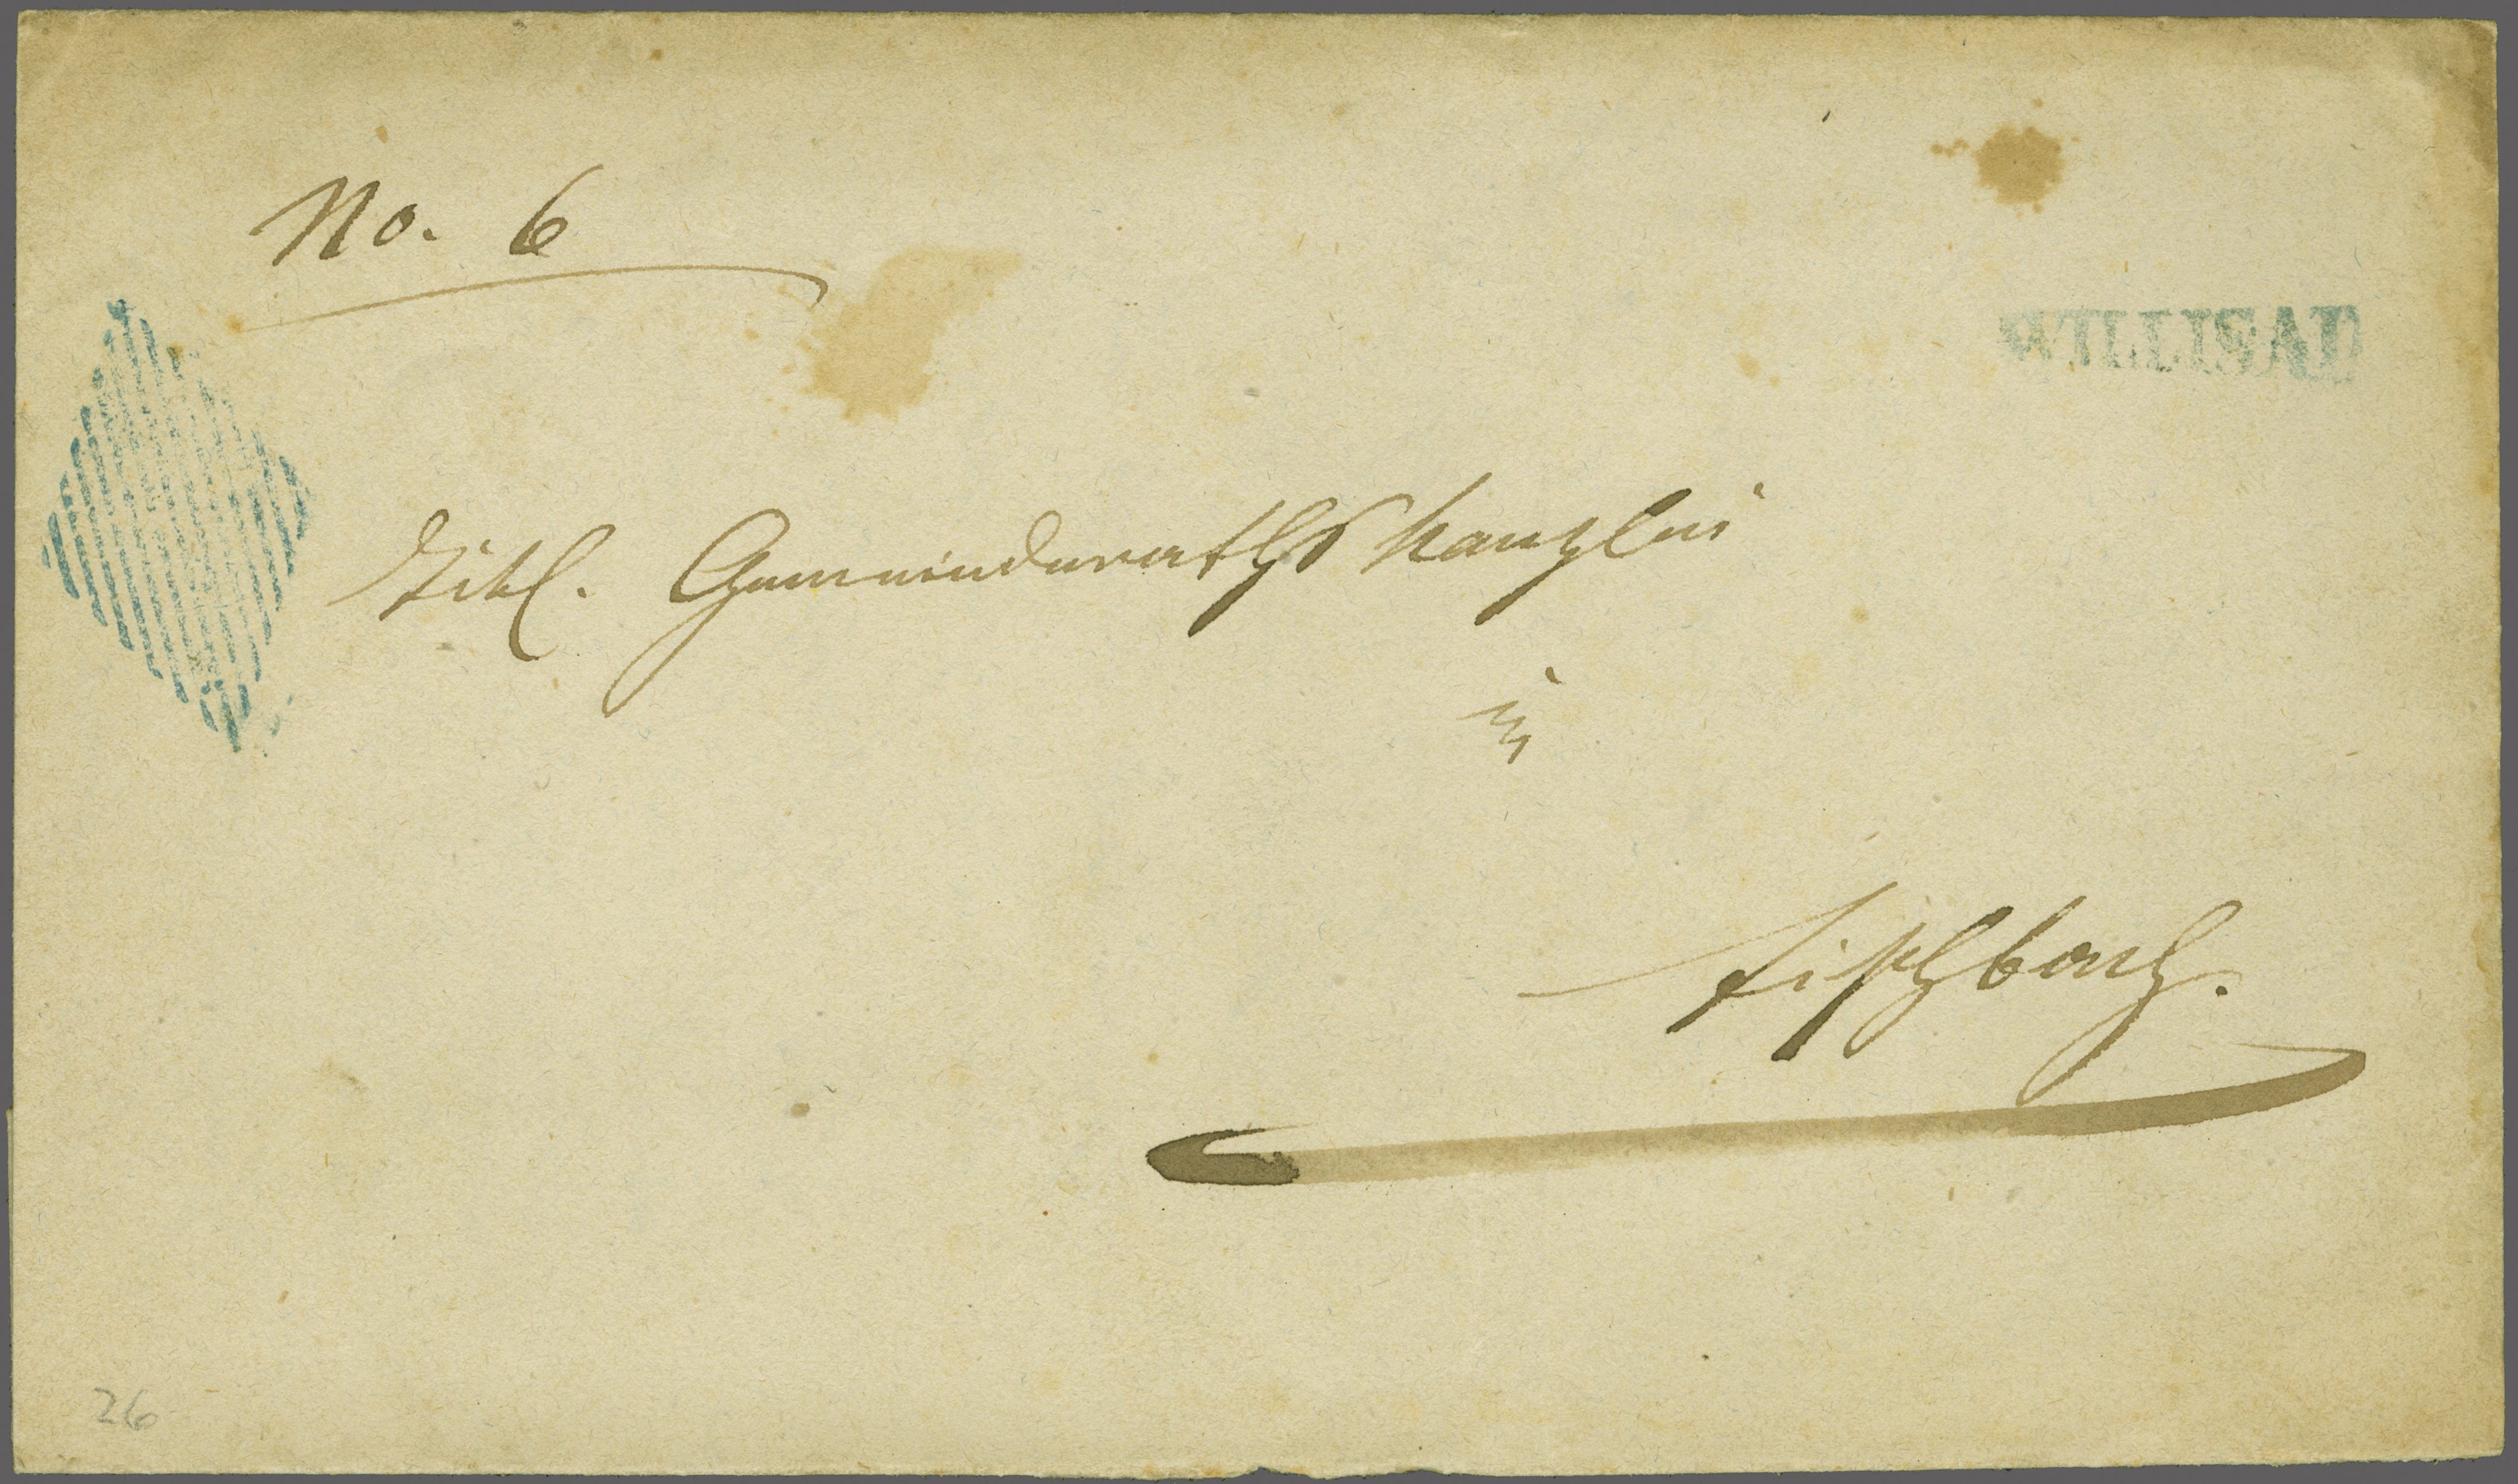 No. 6
WILLISAU
Titl. Gemeinderathskanzlei
in
Fischbach.
26